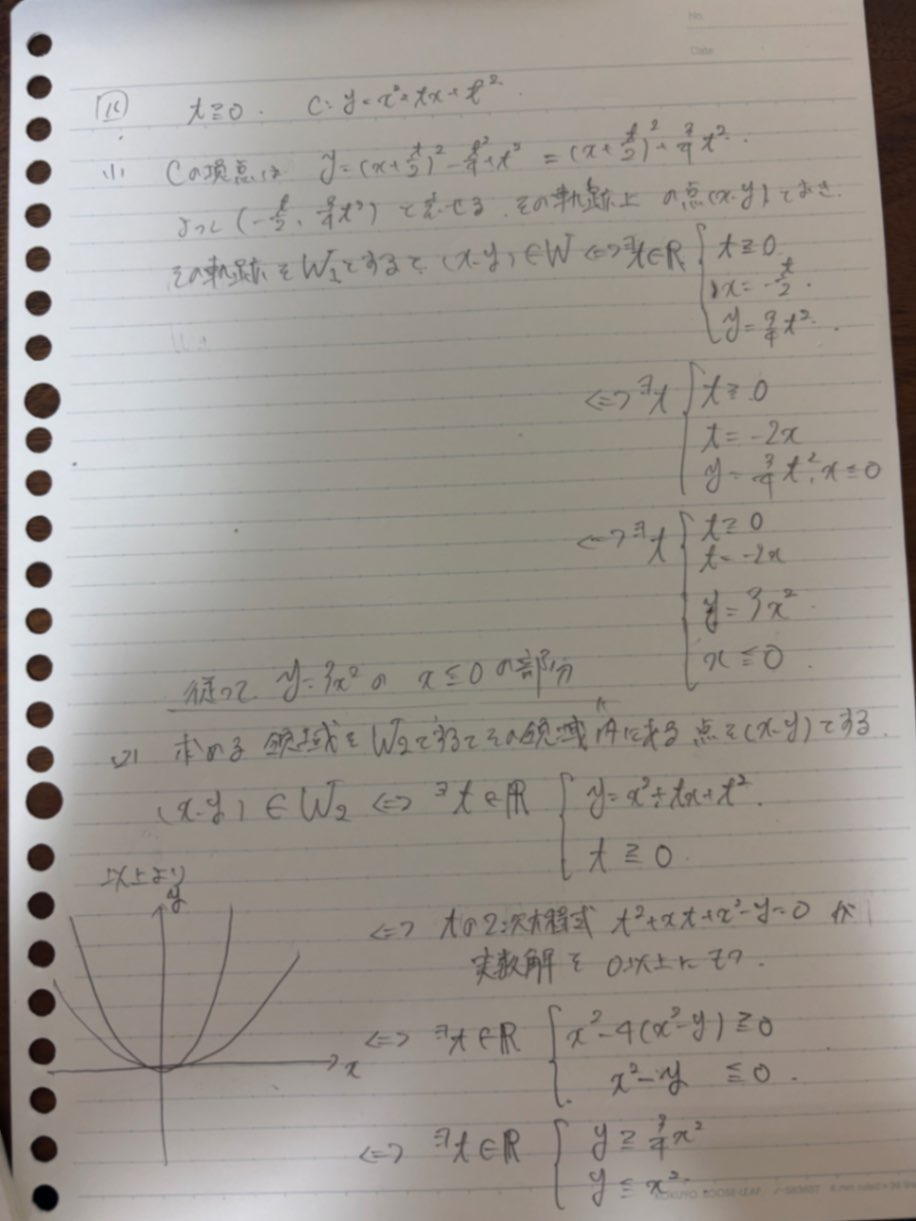 No.
Date
16 t≧0. C: y=x²+tx+t².
(1) Cの頂点は y=(x+t/2)²-t²/4+t² = (x+t/2)²+3/4t².
よって (-t/2, 3/4t²) と表せる. その軌跡上の点(x,y)とおき.
その軌跡をW₁とすると (x,y)∈W ⇔ ∃t∈R { t≧0
x=-t/2.
y=3/4t².
⇔ ∃t { t≧0
t=-2x
y=3/4t², x≦0
⇔ ∃t { t≧0
t=-2x
y=3x².
x≦0.
従って y=3x² の x≦0 の部分
(2) 求める領域をW₂とするとその領域内にある点を(x,y)とする.
(x,y)∈W₂ ⇔ ∃t∈R { y=x²+tx+t².
t≧0.
⇔ tの2次方程式 t²+xt+x²-y=0 が
実数解を0以上にもつ.
⇔ ∃t∈R { x²-4(x²-y)≧0
x²-y ≦0.
⇔ ∃t∈R { y≧3/4x²
y≦x².
以上より
y
x
KOKUYO LOOSE-LEAF